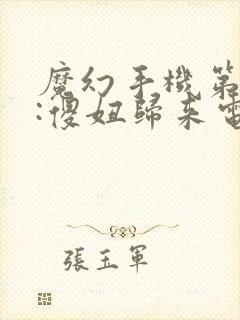 魔幻手機第
:傻妞歸來電
張玉軍